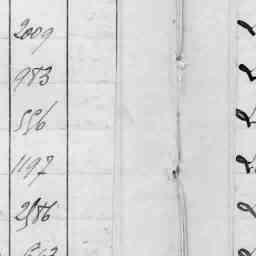 2009
983
556
1197
2586